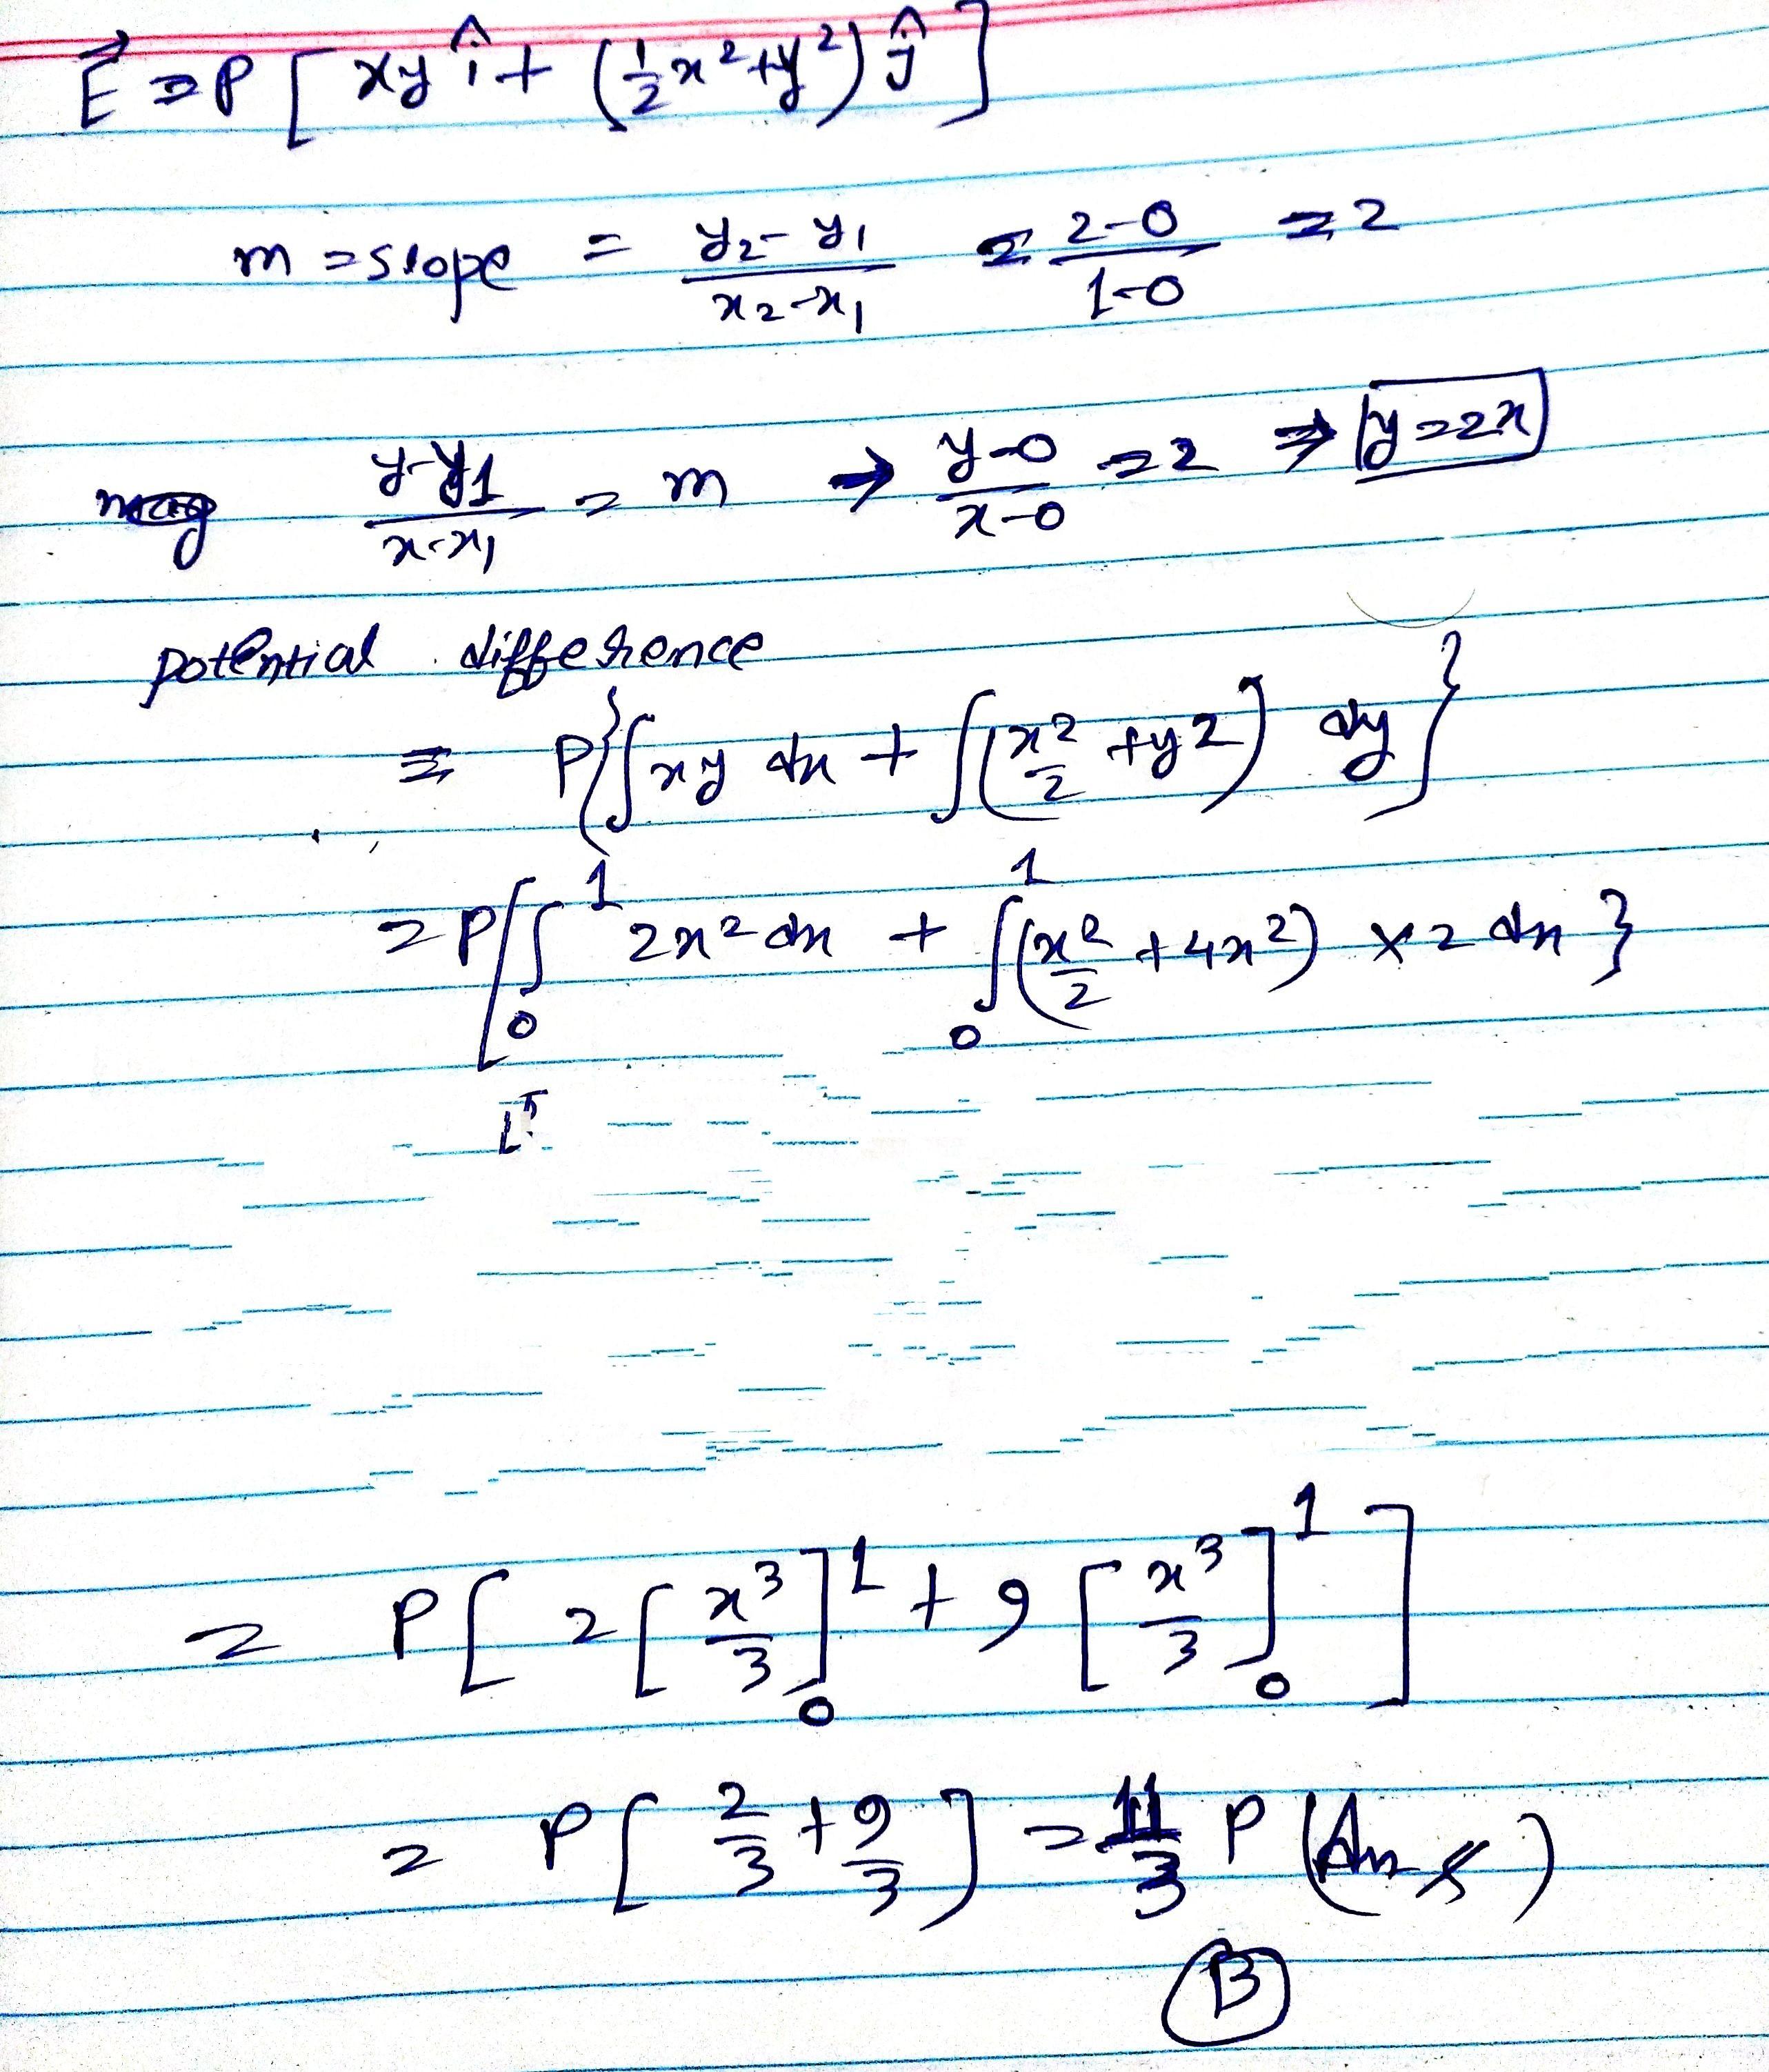 E⃗ = P [ xy î + (½x²+y²) ĵ ]
m = slope = (y₂-y₁)/(x₂-x₁) = (2-0)/(1-0) = 2
(y-y1)/(x-x₁) = m → (y-0)/(x-0) = 2 ⇒ y=2x
potential difference
= P{∫xy dx + ∫(x²/2 + y2) dy}
= P[∫₀¹ 2x² dx + ∫₀¹ (x²/2 + 4x²) × 2 dx }
= P[ 2[x³/3]₀¹ + 9 [x³/3]₀¹ ]
= P[ 2/3 + 9/3 ] = 11/3 P (Ans)
B